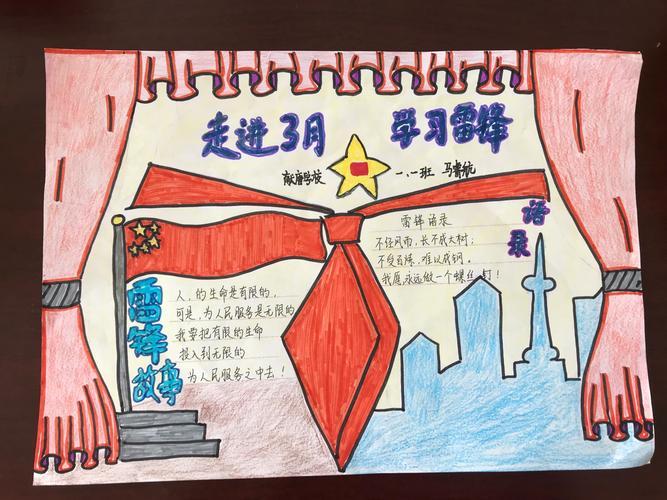 走进3月 学习雷锋
一、一班 马睿航
语录
雷锋语录
不经风雨，长不成大树；
不受百炼，难以成钢。
我愿永远做一个螺丝钉！
雷锋故事
人，的生命是有限的，
可是，为人民服务是无限的
我要把有限的生命
投入到无限的
为人民服务之中去！